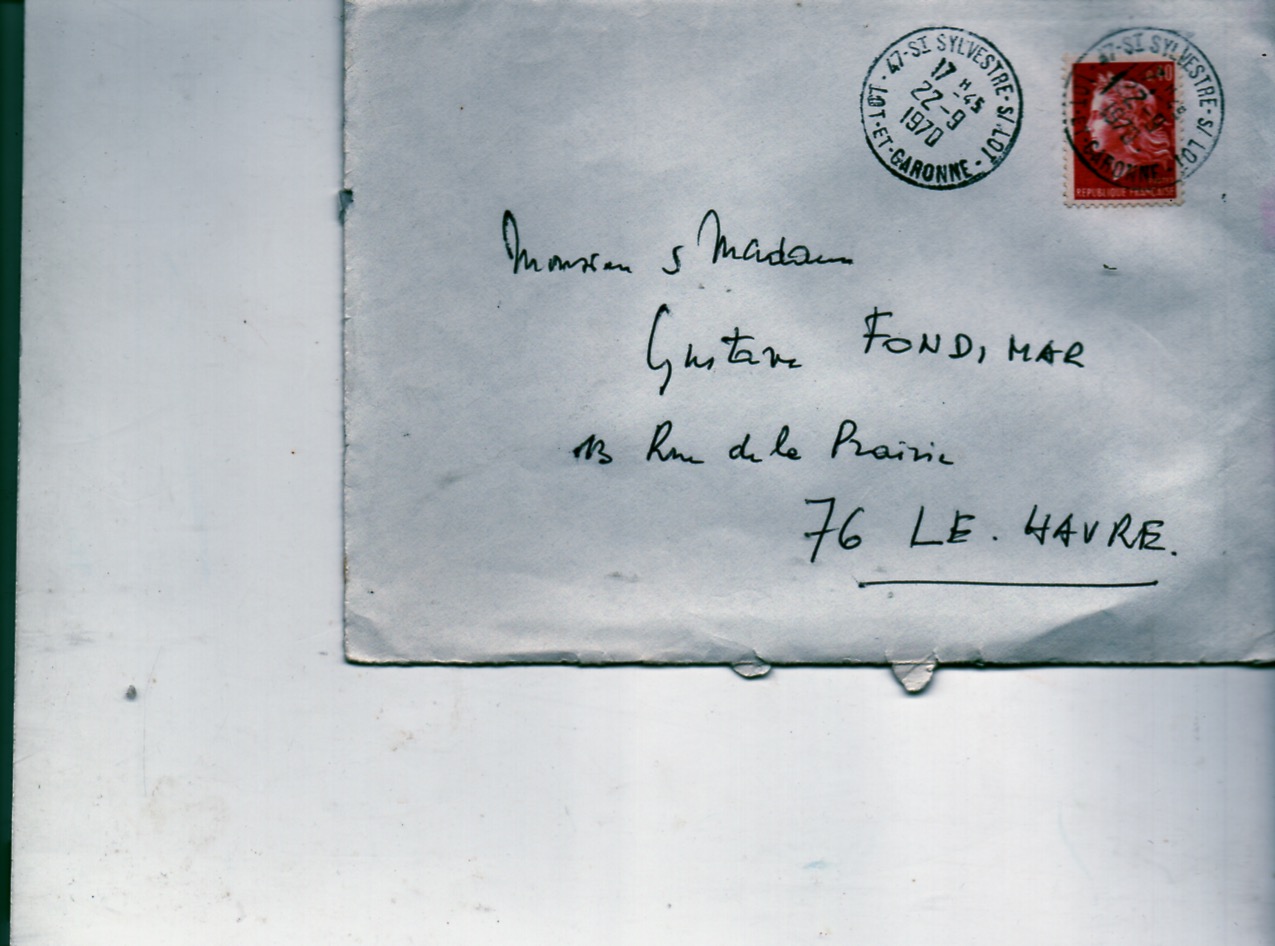 47-ST SYLVESTRE-S/LOT
17 H -45
22-9
1970
LOT-ET-GARONNE-
47-ST SYLVESTRE-S/LOT
22-9
1970
GARONNE-
REPUBLIQUE FRANCAISE
Monsieur & Madame
Gustave FONDIMAR
13 Rue de la Prairie
76 LE. HAVRE.